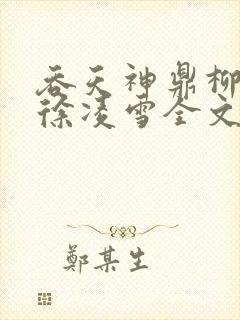 吞天神鼎柳
徐凌雪全文
鄭某生